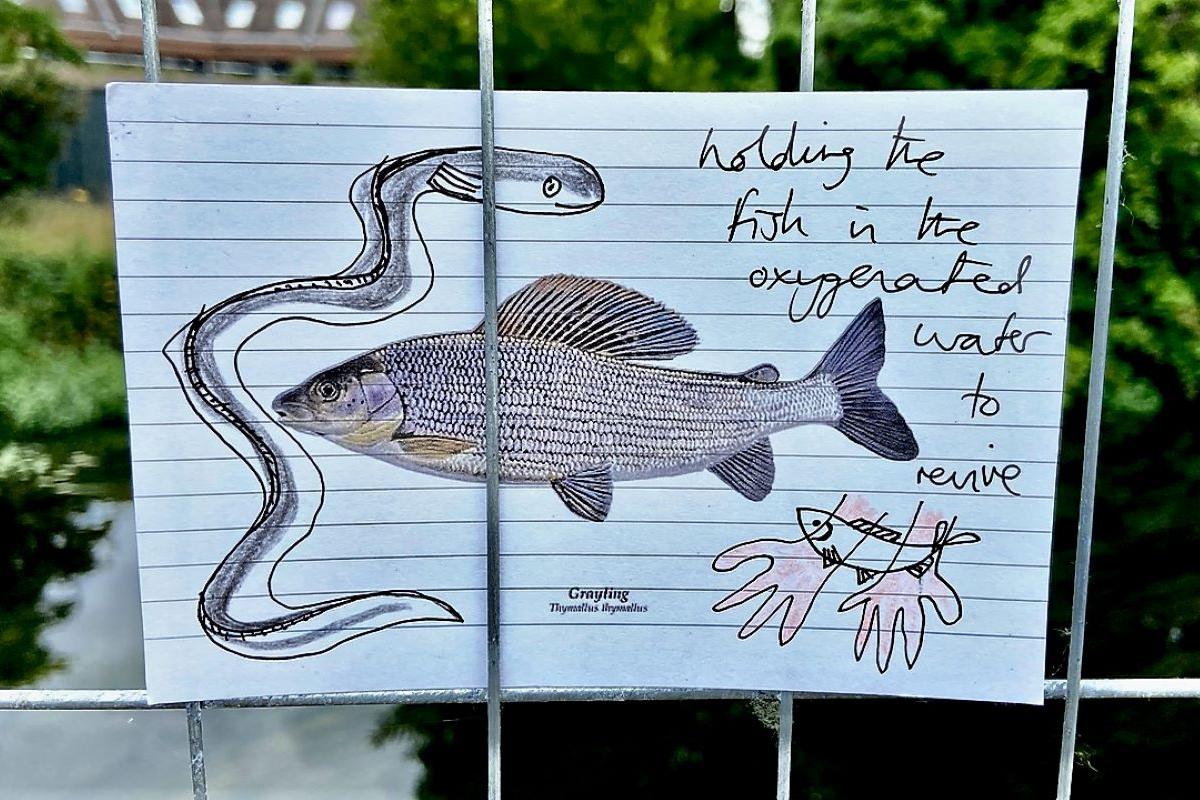 holding the
fish in the
oxygenated
water
to
revive
Grayling
Thymallus thymallus